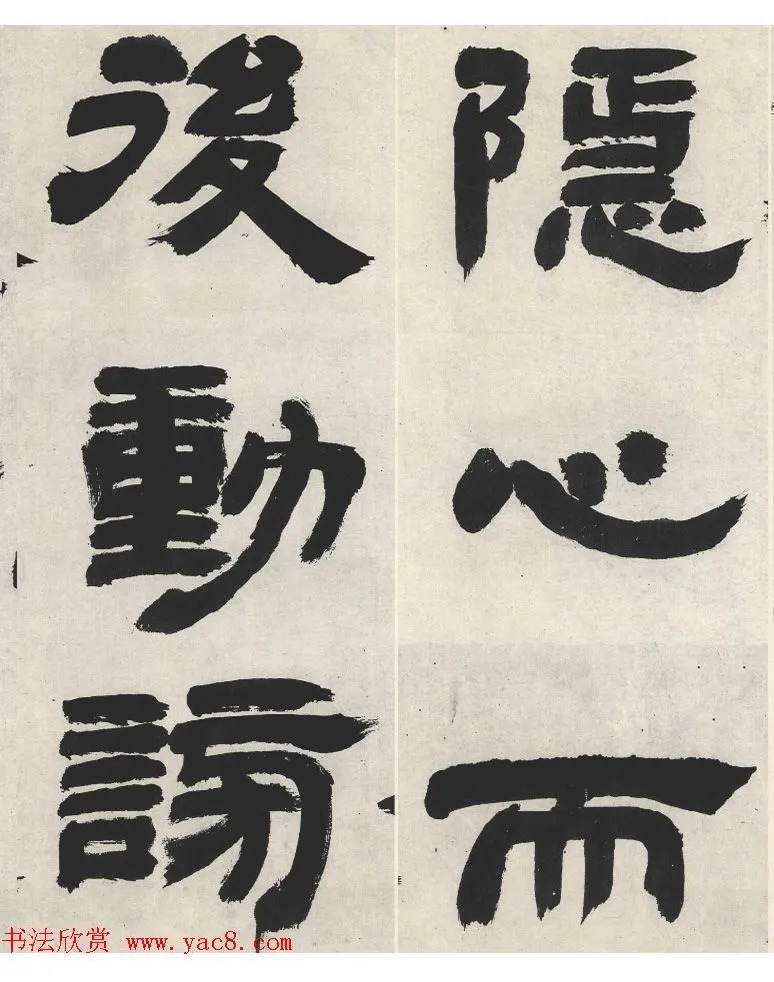 隱心而
後動謗
书法欣赏 www.yac8.com